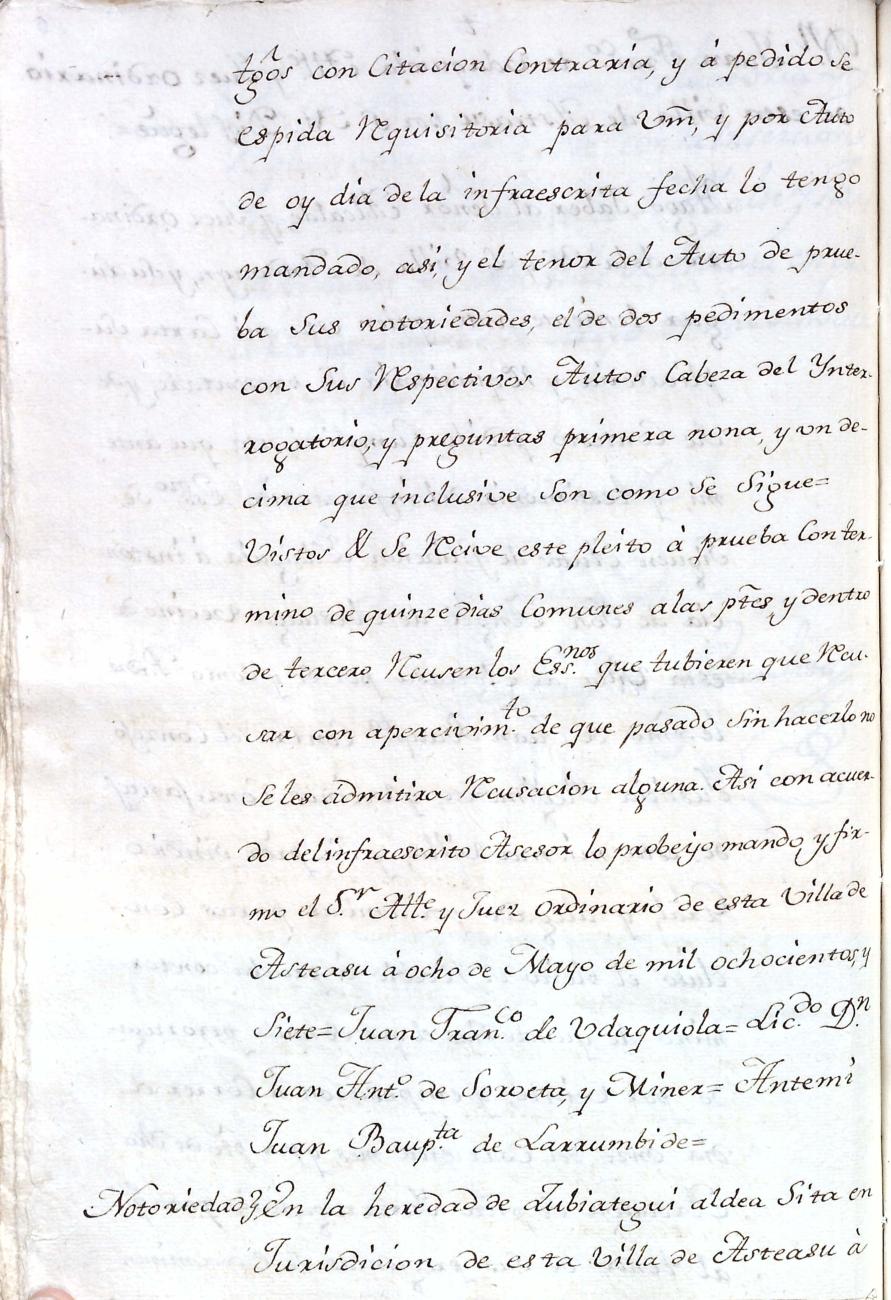 tgōs con Citacion Contraria, y á pedido se
espida Requisitoria para Vm̄, y por Auto
de oy dia de la infraescrita fecha lo tengo
mandado, asi, y el tenor del Auto de prue-
ba sus notoriedades, el de dos pedimentos
con sus Respectivos Autos Cabeza del Ynter-
rogatorio, y preguntas primera nona, y un de-
cima que inclusive son como se sigue=
Vistos & Se Recive este pleito á prueba Con ter-
mino de quinze dias Comunes a las pt̄es, y dentro
de tercero Recusen los Ess.nos que tubieren que Recu-
sar con apercivim.to de que pasado sin hacerlo no
se les admitira Recusacion alguna. Asi con acuer-
do del infraescrito Asesor lo probeyo mando, y fir-
mo el S.r Alle. y Juez Ordinario de esta Villa de
Asteasu á ocho de Mayo de mil ochocientos, y
Siete= Juan Fran.co de Udaquiola= Lic.do D.n
Juan Ant.o de Soroeta, y Miner= Antemi
Juan Baup.ta de Larrumbide=
Notoriedad } En la heredad de Lubiategui aldea Sita en
Jurisdicion de esta Villa de Asteasu à